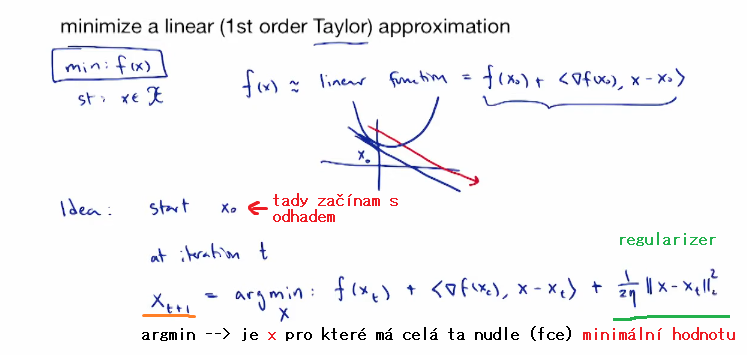 minimize a linear (1st order Taylor) approximation
min: f(x)
st: x ∈ 𝒳
f(x) ≈ linear function = f(x₀) + ⟨∇f(x₀), x - x₀⟩
x₀
Idea: start x₀ ← tady začínam s
odhadem
at iteration t
regularizer
x_{t+1} = argmin_x : f(x_t) + ⟨∇f(x_t), x - x_t⟩ + 1/(2η) ‖x - x_t‖₂²
argmin --> je x pro které má celá ta nudle (fce) minimální hodnotu